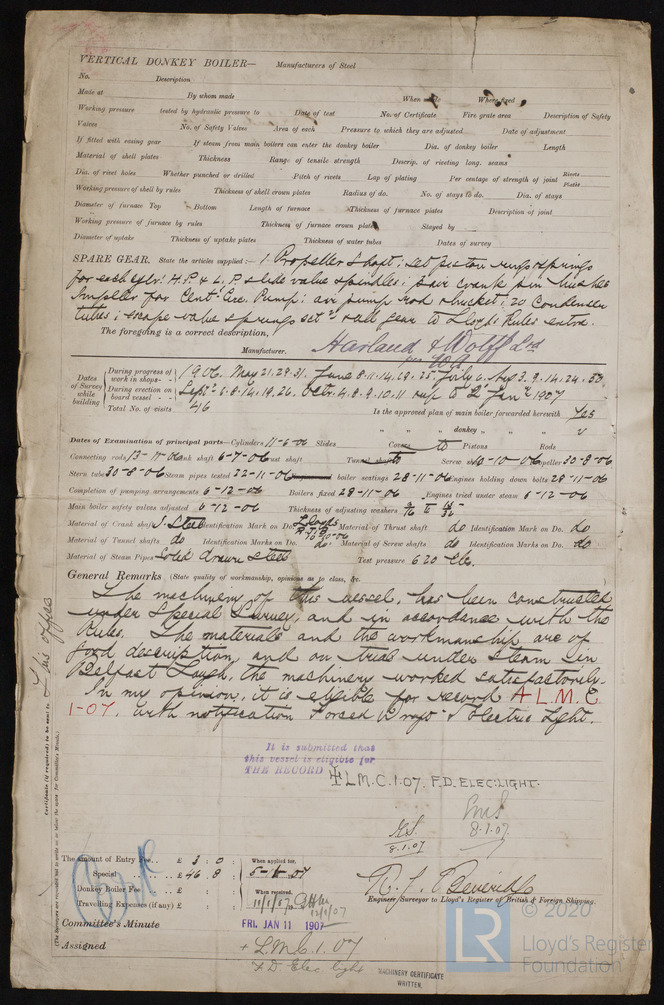 VERTICAL DONKEY BOILER— Manufacturers of Steel
No. Description
Made at By whom made When made Where fixed
Working pressure tested by hydraulic pressure to Date of test No. of Certificate Fire grate area Description of Safety
Valves No. of Safety Valves Area of each Pressure to which they are adjusted Date of adjustment
If fitted with easing gear If steam from main boilers can enter the donkey boiler Dia. of donkey boiler Length
Material of shell plates Thickness Range of tensile strength Descrip. of riveting long. seams
Dia. of rivet holes Whether punched or drilled Pitch of rivets Lap of plating Per centage of strength of joint Rivets Plates
Working pressure of shell by rules Thickness of shell crown plates Radius of do. No. of stays to do. Dia. of stays
Diameter of furnace Top Bottom Length of furnace Thickness of furnace plates Description of joint
Working pressure of furnace by rules Thickness of furnace crown plates Stayed by
Diameter of uptake Thickness of uptake plates Thickness of water tubes Dates of survey
SPARE GEAR. State the articles supplied :— 1 Propeller Shaft ; set piston rings & springs
for each cylr ; H.P. & L.P. slide valve spindles ; pair crank pin bushes
Impeller for Cent. Circ. Pump ; air pump rod & bucket ; 20 Condenser
tubes ; escape valve springs set & all gear to Lloyds Rules extra.
The foregoing is a correct description,
Manufacturer. Harland & Wolff Ltd
Dates of Survey while building
During progress of work in shops - - 1906. May 21, 29, 31, June 8, 11, 14, 19, 25 July 6, Aug 3, 9, 14, 24, 30
During erection on board vessel - - Sept. 6, 8, 14, 19, 26, Octr. 4, 8, 9, 10, 11 on up to 2 Jany 1907
Total No. of visits 46 Is the approved plan of main boiler forwarded herewith Yes
" " " donkey " " "
Dates of Examination of principal parts—Cylinders 11-6-06 Slides Covers do Pistons Rods
Connecting rods 13-11-06 Crank shaft 6-7-06 Thrust shaft Tunnel shafts do Screw shaft 10-10-06 Propeller 30-8-06
Stern tube 30-8-06 Steam pipes tested 22-11-06 Engine and boiler seatings 28-11-06 Engines holding down bolts 28-11-06
Completion of pumping arrangements 6-12-06 Boilers fixed 28-11-06 Engines tried under steam 6-12-06
Main boiler safety valves adjusted 6-12-06 Thickness of adjusting washers
Material of Crank shaft I. Steel Identification Mark on Do. Lloyds Material of Thrust shaft do Identification Mark on Do. do
Material of Tunnel shafts do Identification Marks on Do. do. Material of Screw shafts do Identification Marks on Do. do
Material of Steam Pipes Solid drawn Steel Test pressure 620 lbs.
General Remarks (State quality of workmanship, opinions as to class, &c.
The machinery of this vessel, has been constructed
under Special Survey, and in accordance with the
Rules. The materials and the workmanship are of
good description, and on trial under steam in
Belfast Lough, the machinery worked satisfactorily.
In my opinion, it is eligible for record + L.M.C.
1-07. with notification Forced Draft & Electric Light.
It is submitted that
this vessel is eligible for
THE RECORD + L.M.C. 1.07. F.D. ELEC: LIGHT.
8.1.07
8.1.07
Certificate (if required) to be sent to This office
The amount of Entry Fee .. £ 3 : 0 : When applied for,
Special .. .. £ 46 . 8 :
Donkey Boiler Fee .. .. £ : : When received,
Travelling Expenses (if any) £ : : 11/1/07 12/1/07
R. J. Beveridge
Engineer Surveyor to Lloyd's Register of British & Foreign Shipping.
Committee's Minute FRI. JAN 11 1907
Assigned + L.M.C. 1. 07
F.D. Elec light
MACHINERY CERTIFICATE
WRITTEN.
LR
© 2020
Lloyd's Register
Foundation